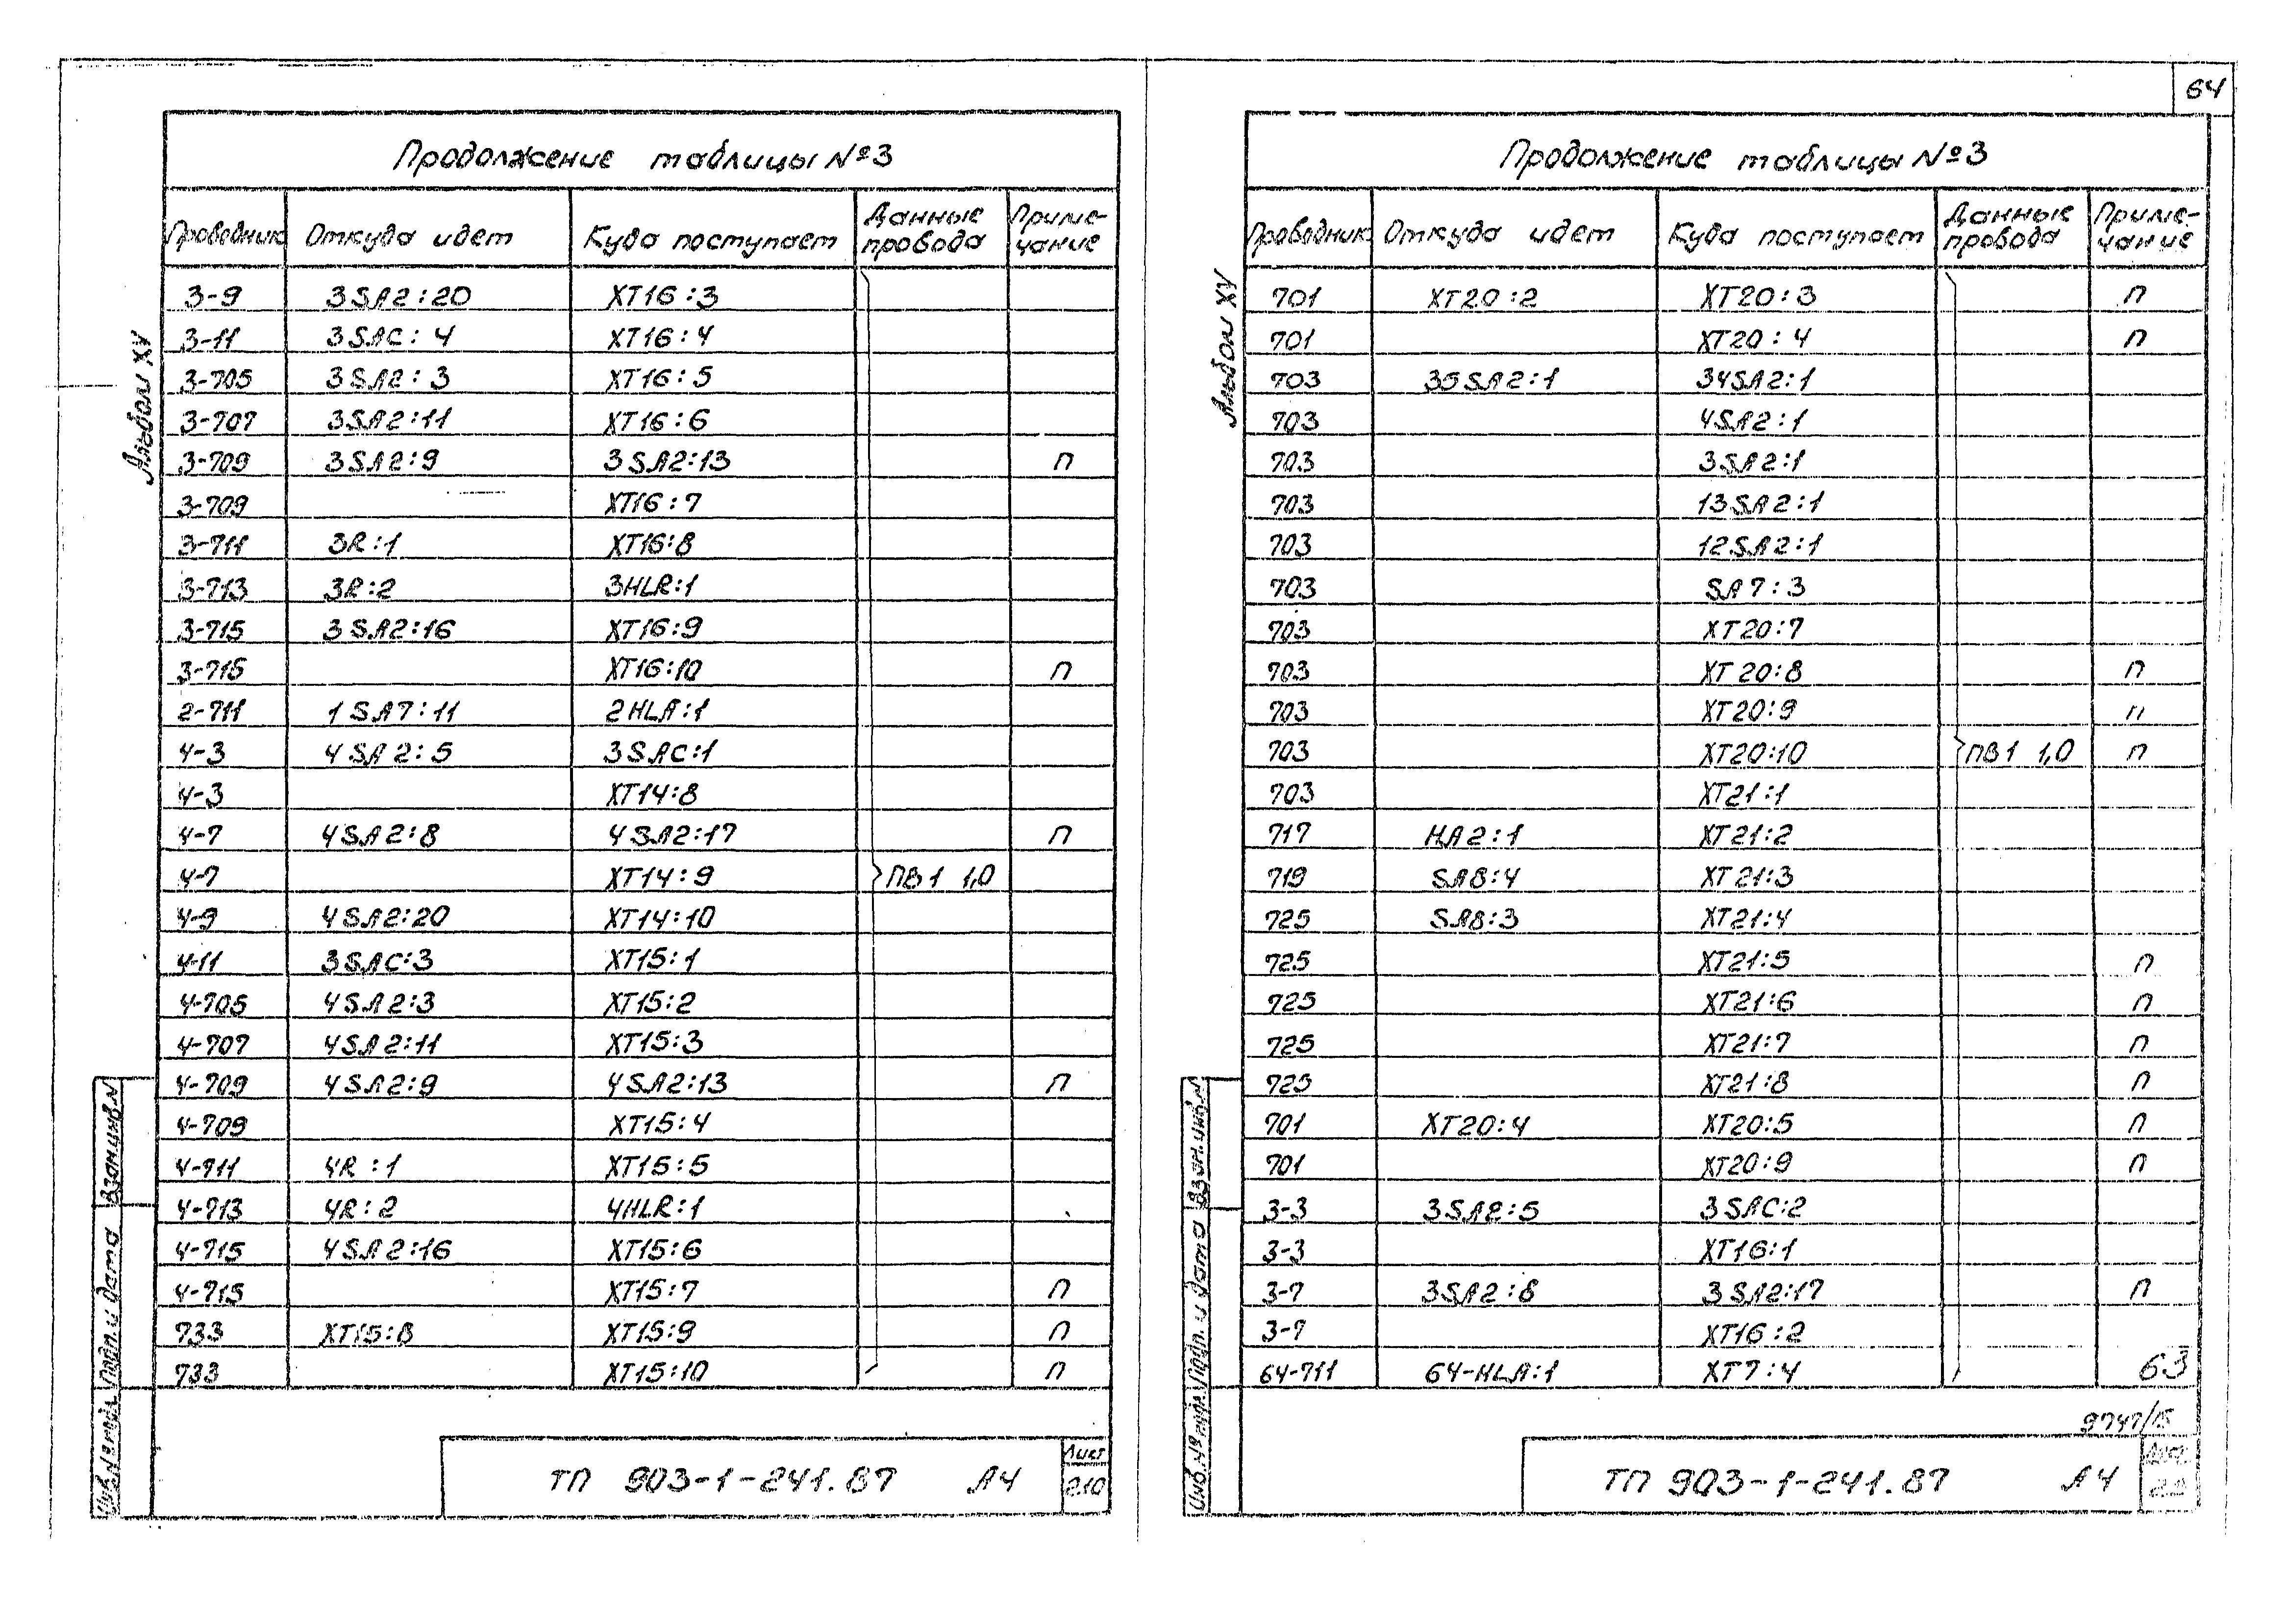 64
Альбом XV
Продолжение таблицы №3
Проводник Откуда идет Куда поступает Данные провода Примечание
3-9 3SA2:20 XT16:3
3-11 3SAC:4 XT16:4
3-705 3SA2:3 XT16:5
3-707 3SA2:11 XT16:6
3-709 3SA2:9 3SA2:13 П
3-709 XT16:7
3-711 3R:1 XT16:8
3-713 3R:2 3HLR:1
3-715 3SA2:16 XT16:9
3-715 XT16:10 П
2-711 1SA7:11 2HLA:1
4-3 4SA2:5 3SAC:1
4-3 XT14:8
4-7 4SA2:8 4SA2:17 П
4-7 XT14:9 ПВ1 1,0
4-9 4SA2:20 XT14:10
4-11 3SAC:3 XT15:1
4-705 4SA2:3 XT15:2
4-707 4SA2:11 XT15:3
4-709 4SA2:9 4SA2:13 П
4-709 XT15:4
4-711 4R:1 XT15:5
4-713 4R:2 4HLR:1
4-715 4SA2:16 XT15:6
4-715 XT15:7 П
733 XT15:8 XT15:9 П
733 XT15:10 П
Инв.№ подл. Подп. и дата Взам.инв.N
ТП 903-1-241.87 А4
Лист
2.10
Альбом XV
Продолжение таблицы №3
Проводник Откуда идет Куда поступает Данные провода Примечание
701 XT20:2 XT20:3 П
701 XT20:4 П
703 35SA2:1 34SA2:1
703 4SA2:1
703 3SA2:1
703 13SA2:1
703 12SA2:1
703 SA7:3
703 XT20:7
703 XT20:8 П
703 XT20:9 П
703 XT20:10 ПВ1 1,0 П
703 XT21:1
717 HA2:1 XT21:2
719 SA8:4 XT21:3
725 SA8:3 XT21:4
725 XT21:5 П
725 XT21:6 П
725 XT21:7 П
725 XT21:8 П
701 XT20:4 XT20:5 П
701 XT20:9 П
3-3 3SA2:5 3SAC:2
3-3 XT16:1
3-7 3SA2:8 3SA2:17 П
3-7 XT16:2
64-711 64-HLA:1 XT7:4
63
9747/15
Инв.№ подл. Подп. и дата Взам.инв.N
ТП 903-1-241.87 А4
Лист